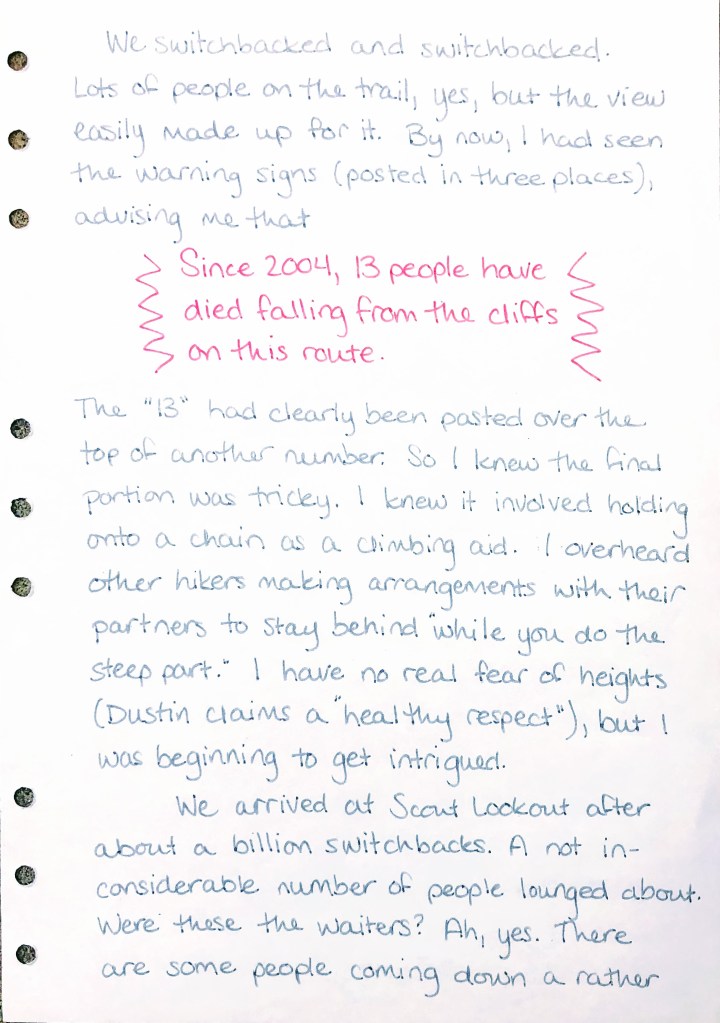 We switchbacked and switchbacked.
Lots of people on the trail, yes, but the view
easily made up for it. By now, I had seen
the warning signs (posted in three places),
advising me that
Since 2004, 13 people have
died falling from the cliffs
on this route.
The "13" had clearly been pasted over the
top of another number. So I knew the final
portion was tricky. I knew it involved holding
onto a chain as a climbing aid. I overheard
other hikers making arrangements with their
partners to stay behind "while you do the
steep part." I have no real fear of heights
(Dustin claims a "healthy respect"), but I
was beginning to get intrigued.
We arrived at Scout Lookout after
about a billion switchbacks. A not in-
considerable number of people lounged about.
Were these the waiters? Ah, yes. There
are some people coming down a rather